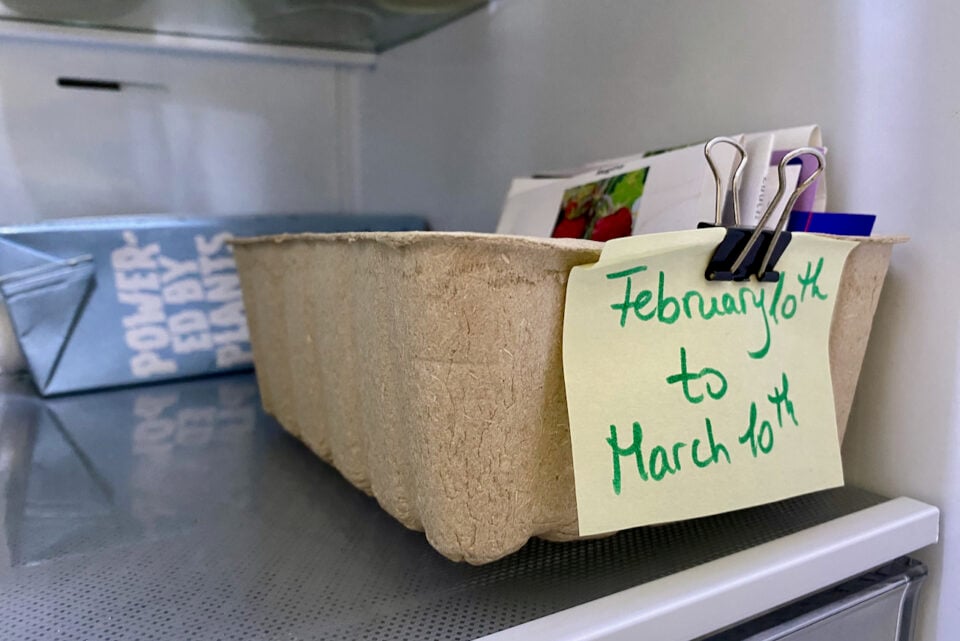 POWER-
ED BY
PLANTS
February 10th
to
March 10th